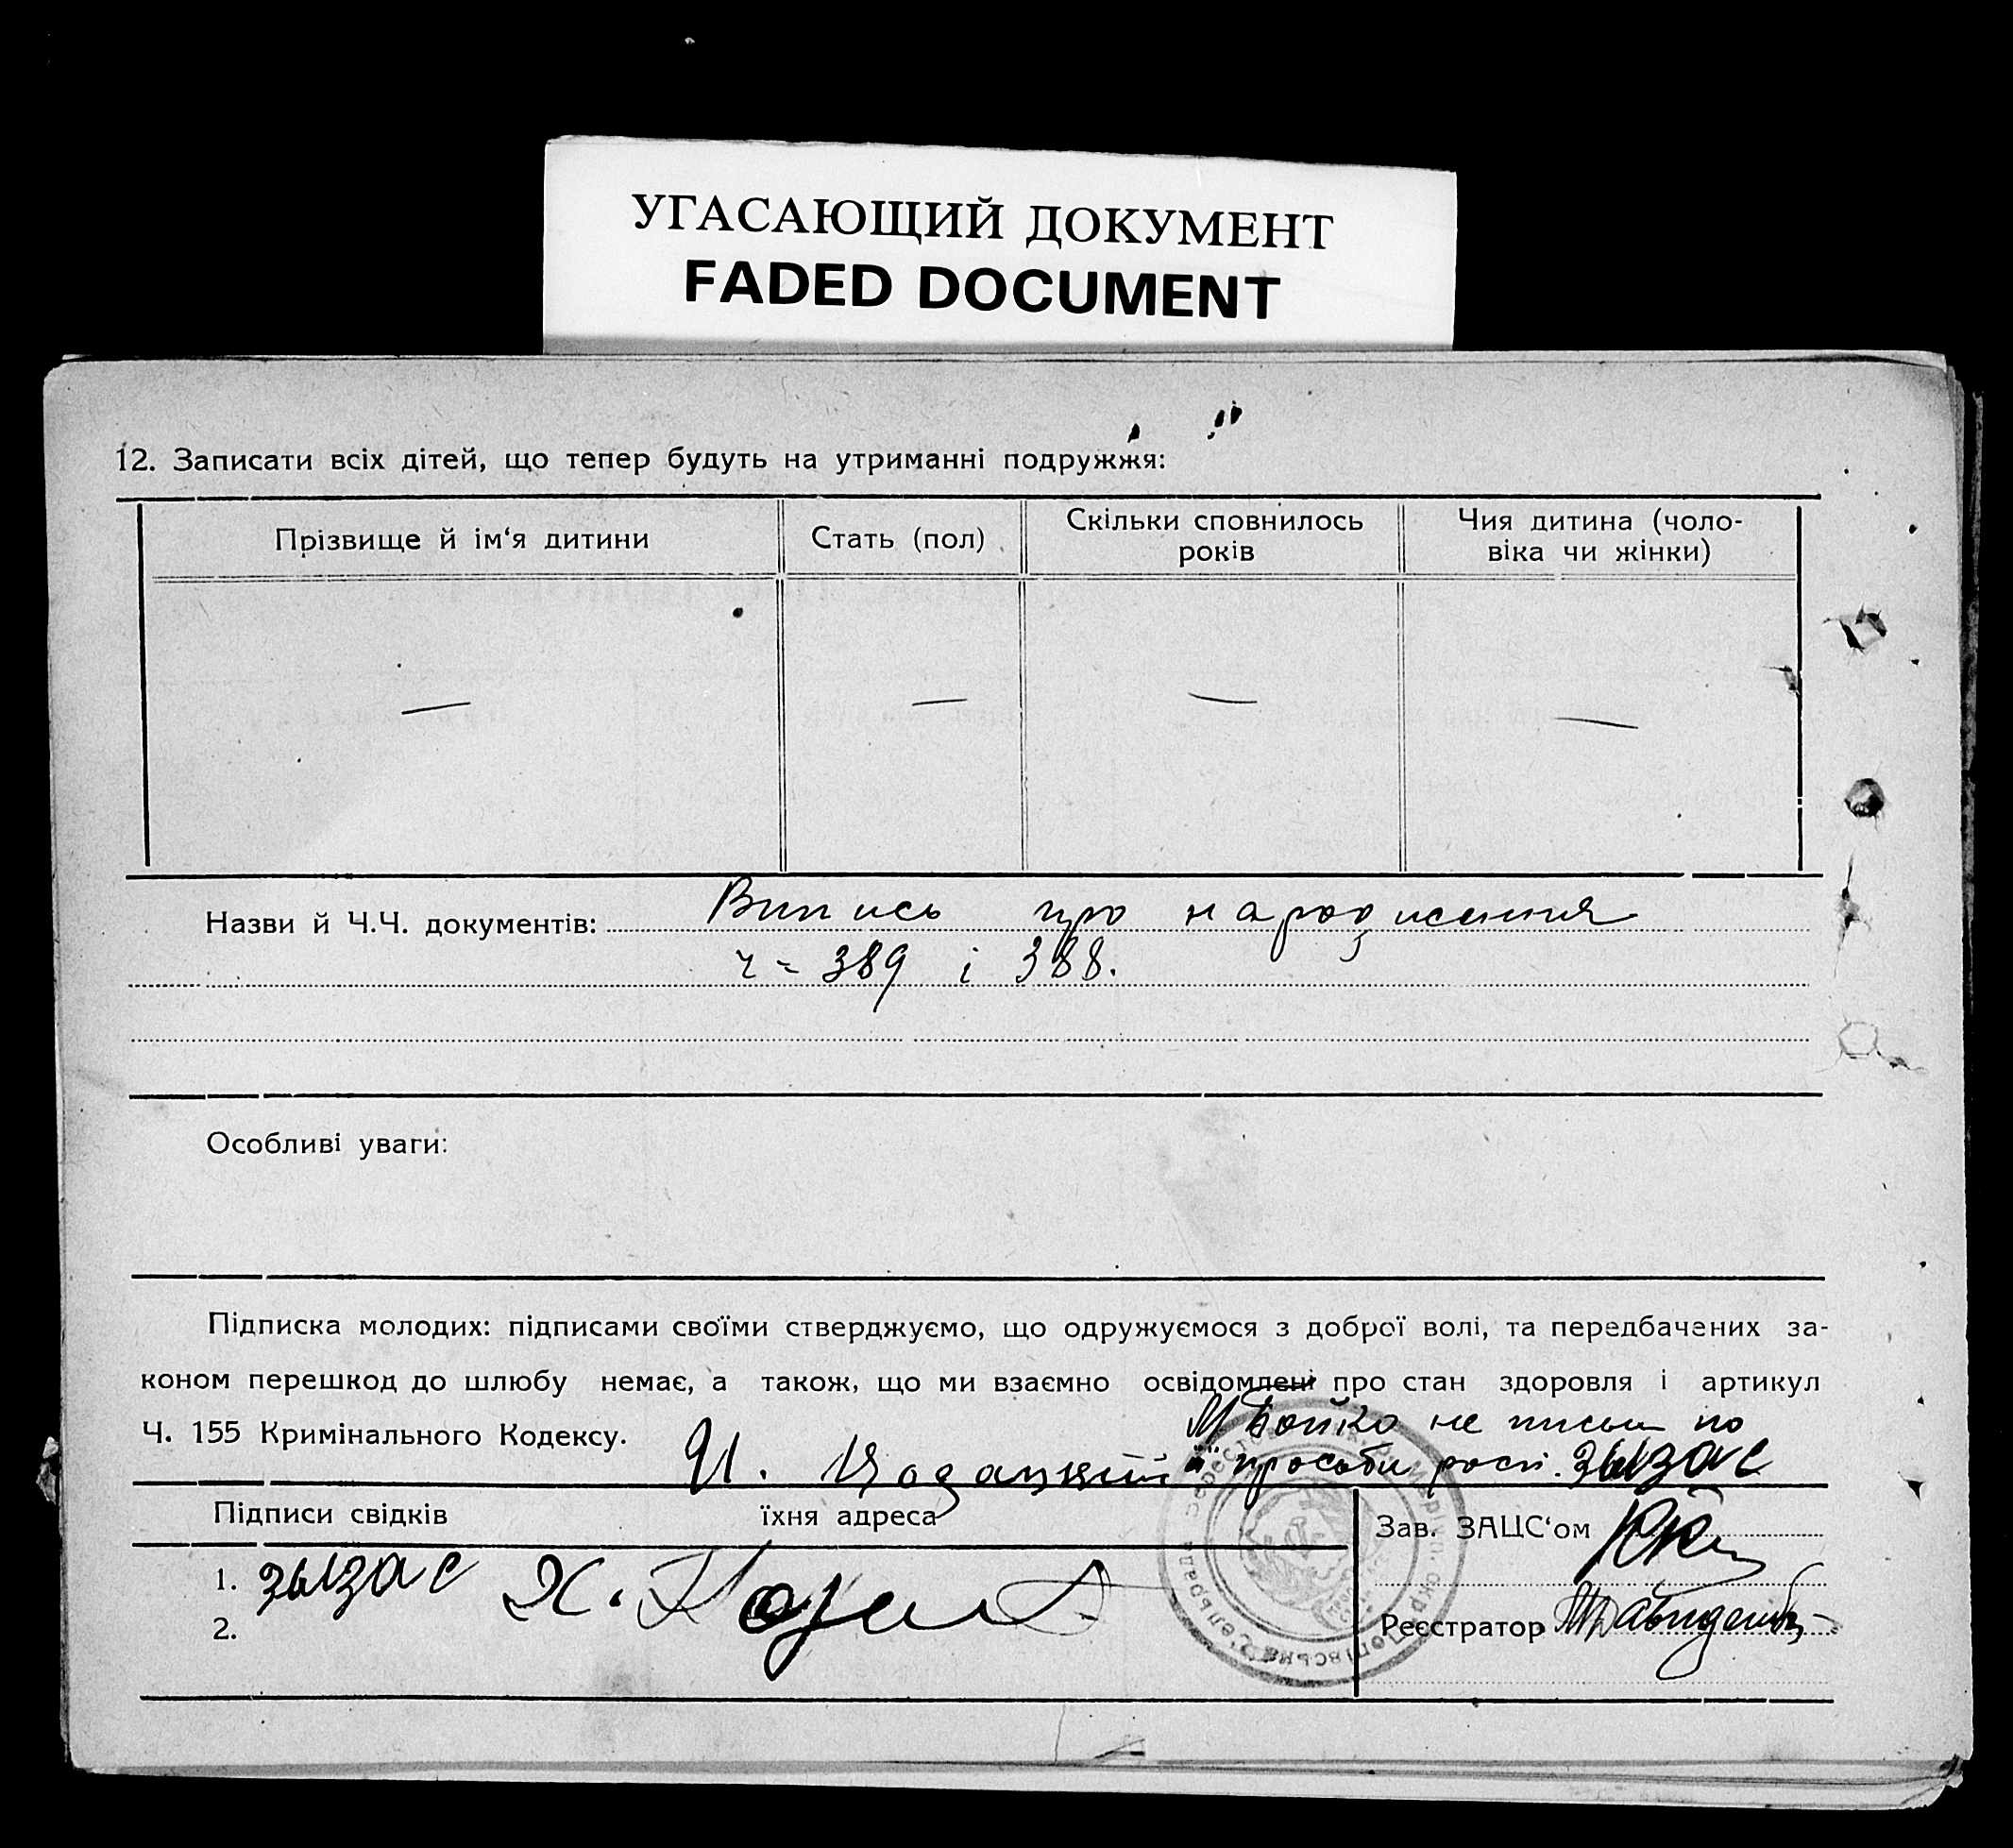 УГАСАЮЩИЙ ДОКУМЕНТ
FADED DOCUMENT
12. Записати всіх дітей, що тепер будуть на утриманні подружжя:
Прізвище й ім‘я дитини
Стать (пол)
Скільки сповнилось
років
Чия дитина (чоло-
віка чи жінки)
— — — —
Назви й Ч.Ч. документів: Випись про народження
ч = 389 і 388.
Особливі уваги:
Підписка молодих: підписами своїми стверджуємо, що одружуємося з доброї волі, та передбачених за-
коном перешкод до шлюбу немає, а також, що ми взаємно освідомлені про стан здоровля і артикул
Ч. 155 Кримінального Кодексу.
М Бойко не письм по
її просьби росп.
Підписи свідків
їхня адреса
Зав. ЗАЦС‘ом
1.
2.
Реєстратор